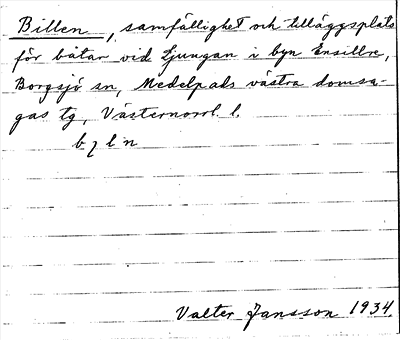 Billen, samfällighet och tilläggsplats
för båtar vid Ljungan i byn Ensillre,
Borgsjö sn, Medelpads västra domsa-
gas tg, Västernorrl. l.
Valter Jansson 1934.